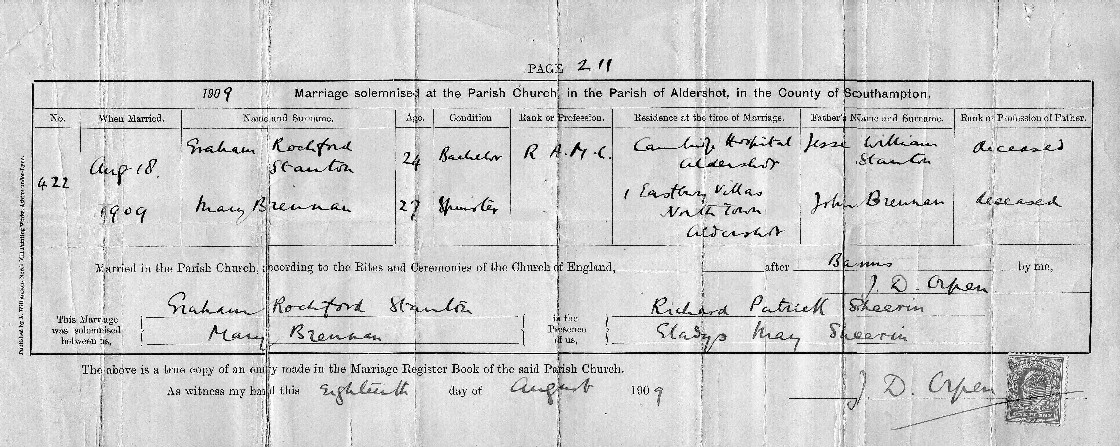 PAGE 211
1909 Marriage solemnised at the Parish Church, in the Parish of Aldershot, in the County of Southampton.
No. When Married. Name and Surname. Age. Condition Rank or Profession. Residence at the time of Marriage. Father's Name and Surname. Rank or Profession of Father.
422 Aug. 18. 1909
Graham Rochford Stanton 24 Bachelor R A.M.C. Cambridge Hospital Aldershot Jesse William Stanton deceased
Mary Brennan 27 Spinster 1 Eastbury Villas North Town Aldershot John Brennan deceased
Married in the Parish Church, according to the Rites and Ceremonies of the Church of England, after Banns by me,
J. D. Orpen
This Marriage was solemnised between us,
Graham Rochford Stanton
Mary Brennan
in the Presence of us,
Richard Patrick Sheerin
Gladys May Sheerin
The above is a true copy of an entry made in the Marriage Register Book of the said Parish Church.
As witness my hand this Eighteenth day of August 1909
J. D. Orpen